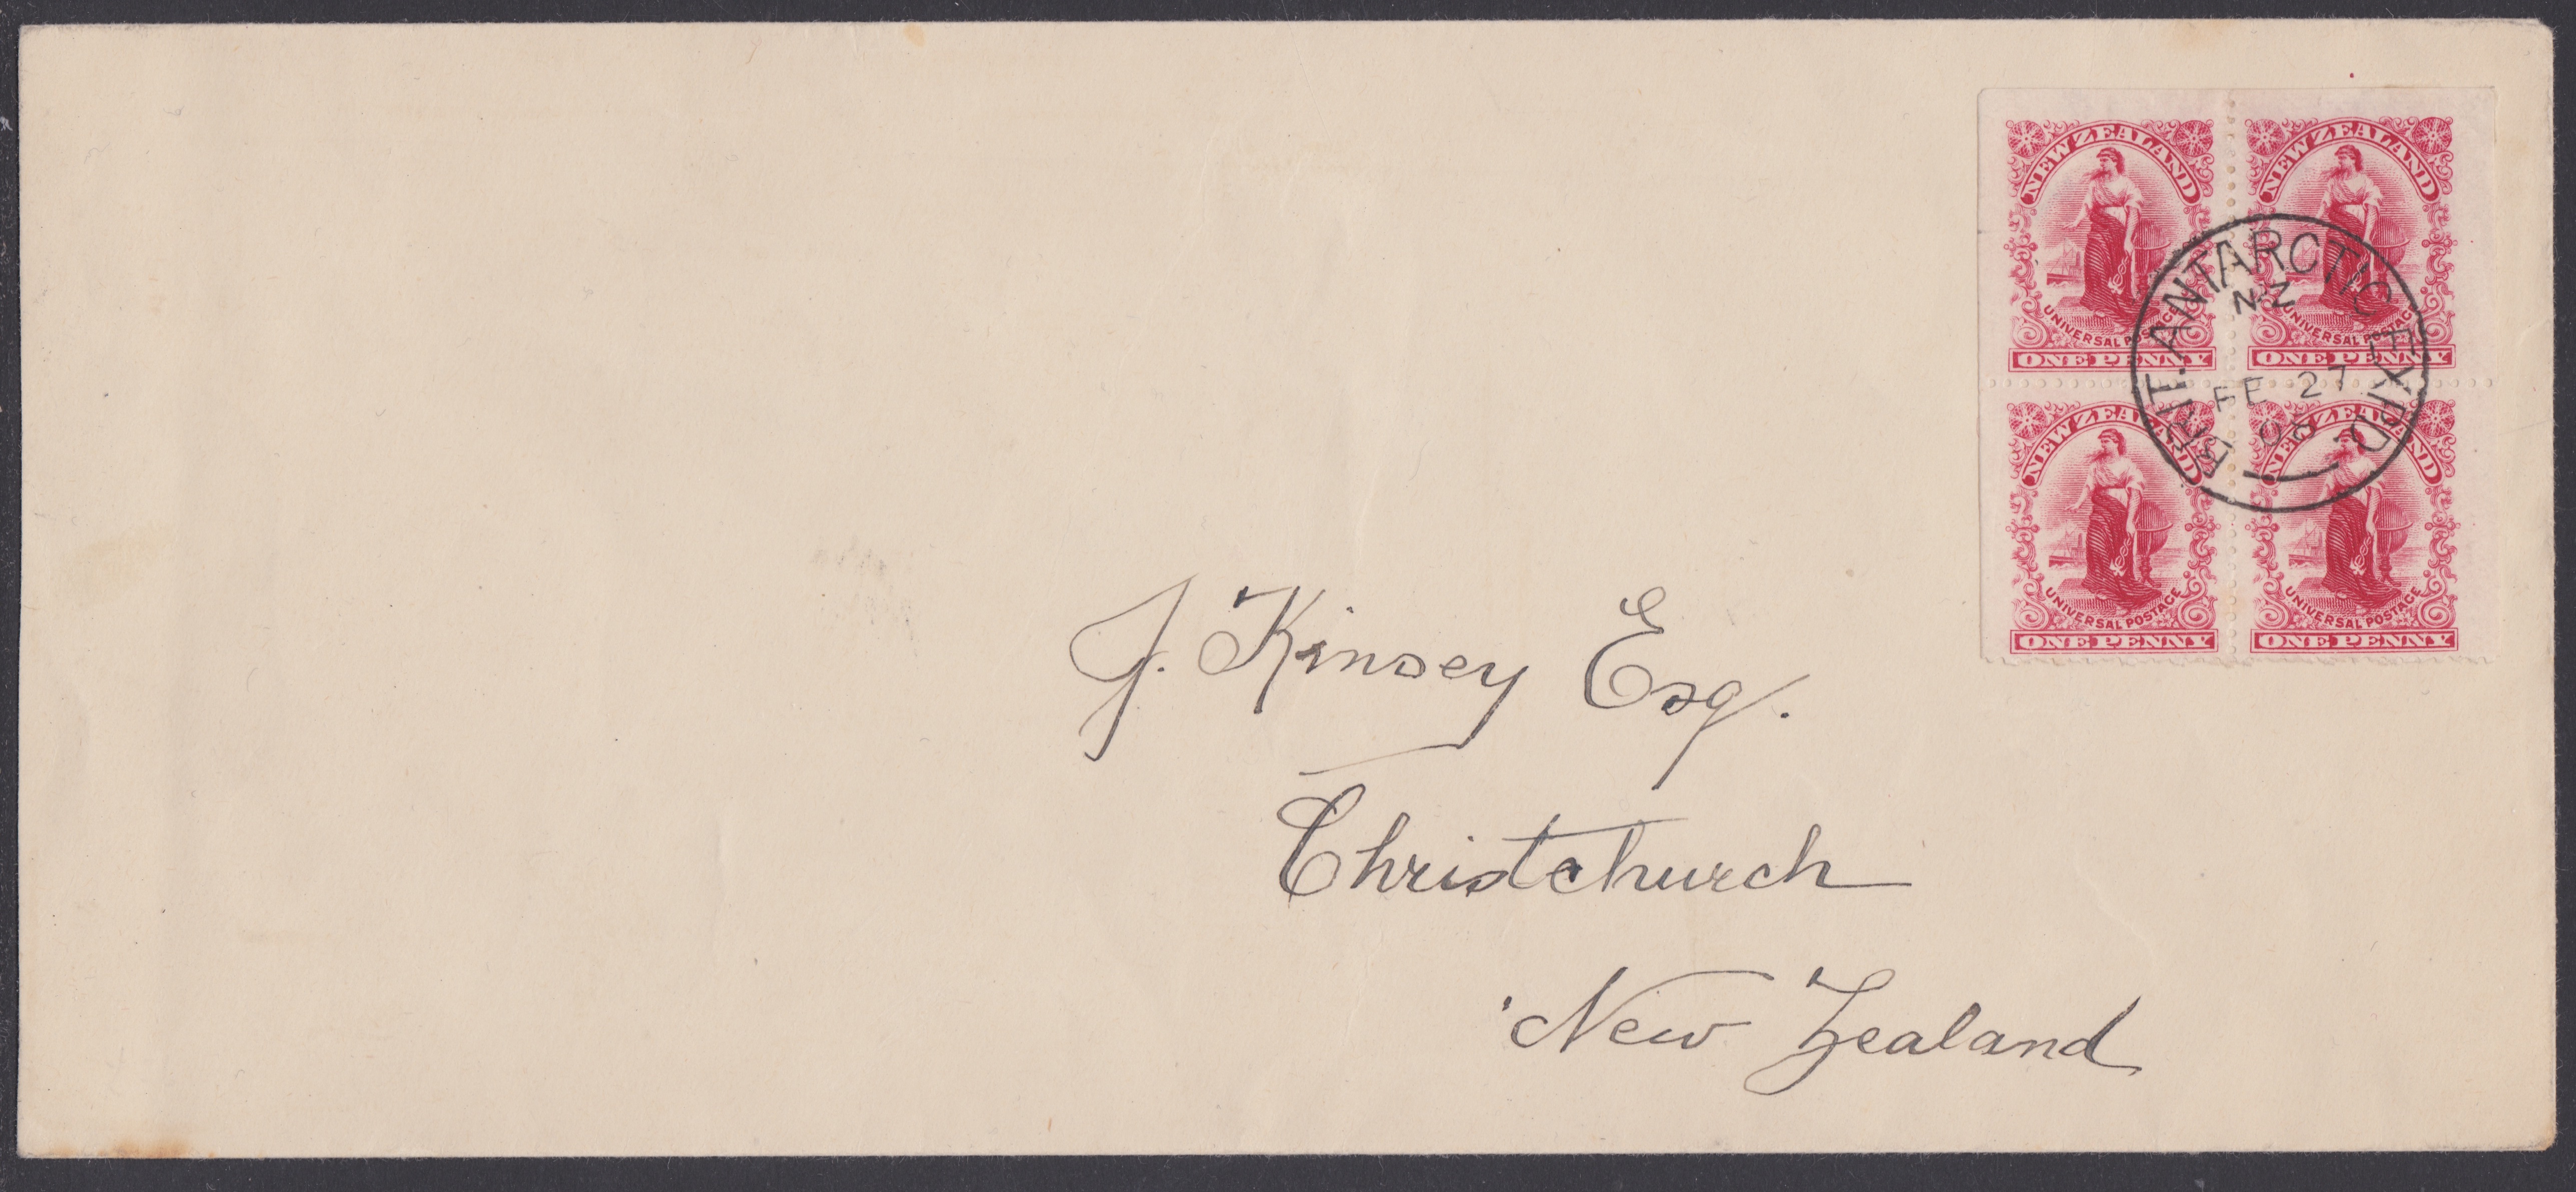 NEW ZEALAND
UNIVERSAL POSTAGE
ONE PENNY
NEW ZEALAND
UNIVERSAL POSTAGE
ONE PENNY
NEW ZEALAND
UNIVERSAL POSTAGE
ONE PENNY
NEW ZEALAND
UNIVERSAL POSTAGE
ONE PENNY
BRIT. ANTARCTIC EXPD.
N.Z
FE 27
08
J. Kinsey Esq.
Christchurch
New Zealand